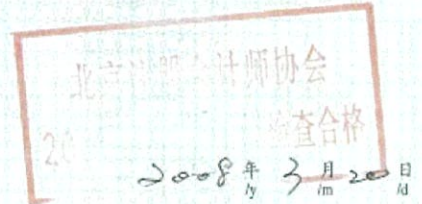 北京注册会计师协会
20 查合格
2008 年 3 月 20 日
/y /m /d